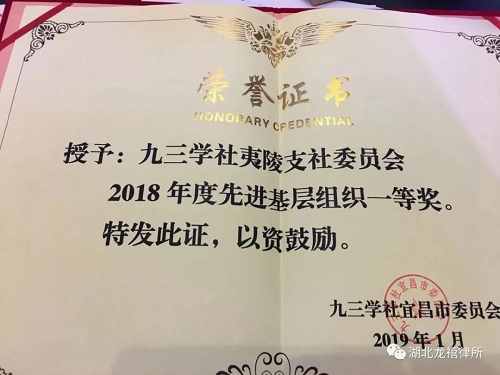 荣誉证书
HONORARY CREDENTIAL
授予：九三学社夷陵支社委员会
2018 年度先进基层组织一等奖。
特发此证，以资鼓励。
九三学社宜昌市委员会
2019 年 1 月
湖北龙禧律所